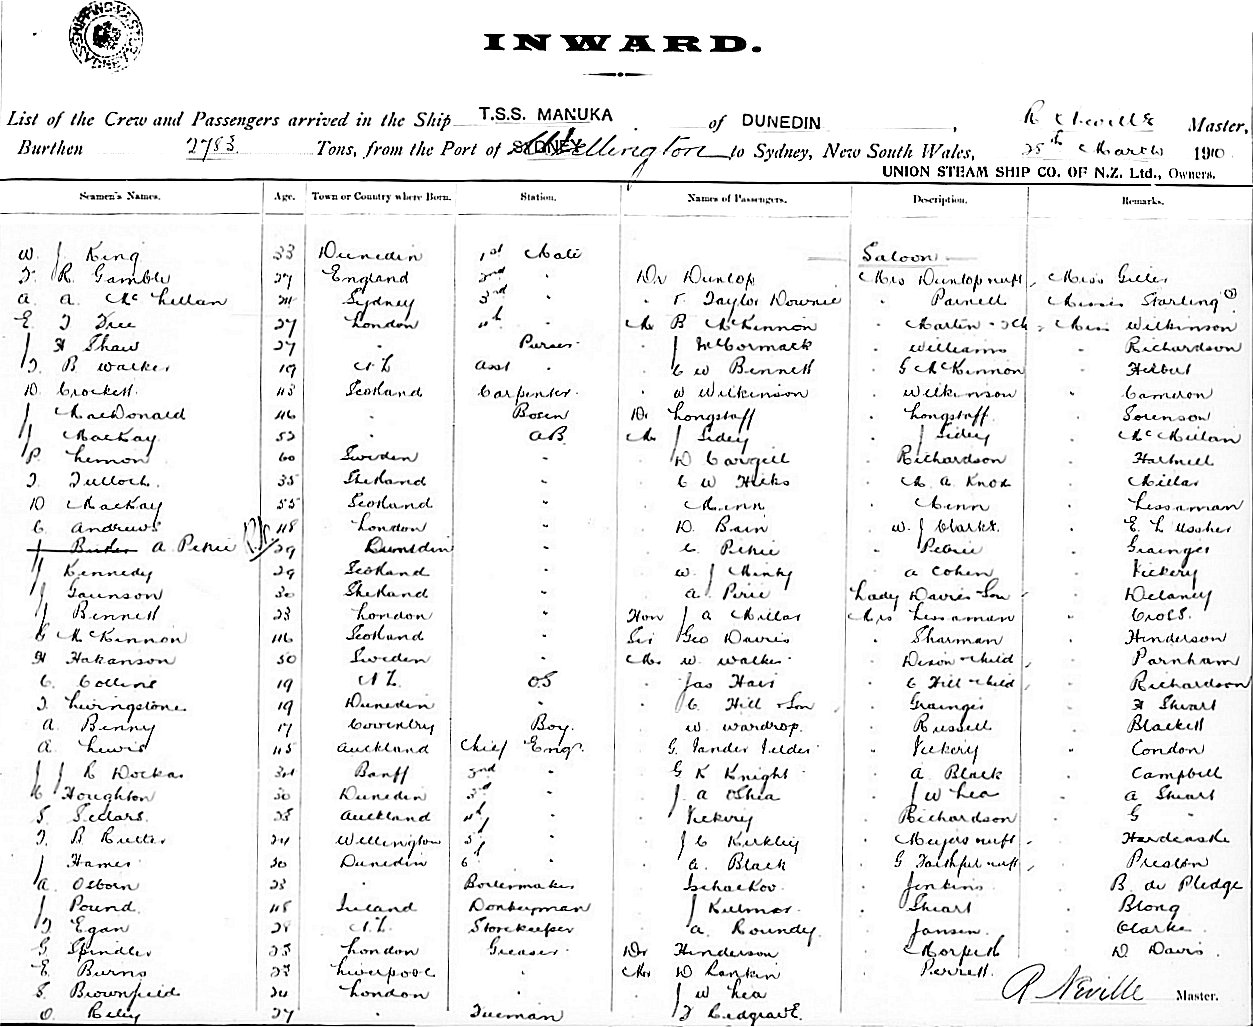 INWARD.
List of the Crew and Passengers arrived in the Ship T.S.S. MANUKA of DUNEDIN, R Neville Master,
Burthen 2783 Tons, from the Port of SYDNEY Wellington to Sydney, New South Wales, 28th March 1910
UNION STEAM SHIP CO. OF N.Z. Ltd., Owners.
Seamen's Names. Age. Town or Country where Born. Station. Names of Passengers. Description. Remarks.
W. J King 33 Dunedin 1st Mate Saloon
R Gamble 27 England 2nd " Dr Dunlop Mrs Dunlop Miss Giles
A. A. McLellan 24 Sydney 3rd " " Taylor Downie " Parnell Misses Starling
E. 27 London 4th " Mr B McKinnon " Martin Miss Wilkinson
J H Shaw 27 " Purser " J McCormack " Williams " Richardson
B Walker 19 N.Z. Asst " " C W Bennett " G McKinnon "
D. Crockett 43 Scotland Carpenter " W Wilkinson " Wilkinson " Cameron
J MacDonald 46 " Bosun Dr Longstaff " Longstaff " Sorenson
J MacKay 52 " AB Mr J Sidey " J Sidey " McMillan
P. Lemon 60 Sweden " " D Cargill " Richardson " Hartnell
T. Tulloch. 35 Shetland " " C W Hicks " M. A. Knox " Millar
D MacKay 55 Scotland " " Minn " Minn " Lessaman
C Andrews 48 London " " D. Bain " W. J Clarke. " E. L Ussher
J A. Petrie 29 Dunedin " " C. Petrie " Petrie " Grainger
J Kennedy 29 Scotland " " W. J " A Cohen " Vickery
J Gaunson 30 Shetland " " A. Pirie Lady Davis & Son " Delaney
J Bennett 23 London " Hon J A Millar Mrs Lessaman " Cross.
G McKinnon 46 Scotland " Sir Geo Davis " Sharman " Henderson
H Hakanson 50 Sweden " Mr W. Walker " Dixon & child " Parnham
C. Collins 19 N.Z. OS " Jas Hair " C Hill & child " Richardson
T. Livingstone 19 Dunedin " " C. Hill & Son " Grainger " H Stuart
A. Binny 17 Coventry Boy. " W. Wardrop. " Russell " Blackett
A. Lewis 45 Auckland Chief Engr. " G. Vander Velder " Vickery " Condon
J J R 34 Banff 2nd " " G K Knight " A Black " Campbell
C Houghton 30 Dunedin 3rd " " J. A O'Shea " J W Lea " A Stuart
S. Sellars. 25 Auckland 4th " " Vickery " Richardson " G "
T. B Rutter 24 Wellington 5th " " J C Kirkley " Meyers " Hardcastle
J Hames 30 Dunedin 6th " " A. Black " G Faithful " Preston
A. Osborn 23 " Boilermaker " " Jenkins. " B. de Pledge
J Pound. 48 Ireland Donkeyman " J " Stuart " Blong
T Egan 28 N.Z. Storekeeper " A. Roundey. " Jansen. " Clarke.
G Spindler 25 London Greaser Dr Henderson " Morpeth " D Davis.
E. Burns 23 Liverpool " Mr D Rankin " Perrett.
S. Brownfield 24 London " " J W Lea
O. Riley 27 " Fireman " J Redgrave.
R Neville Master.